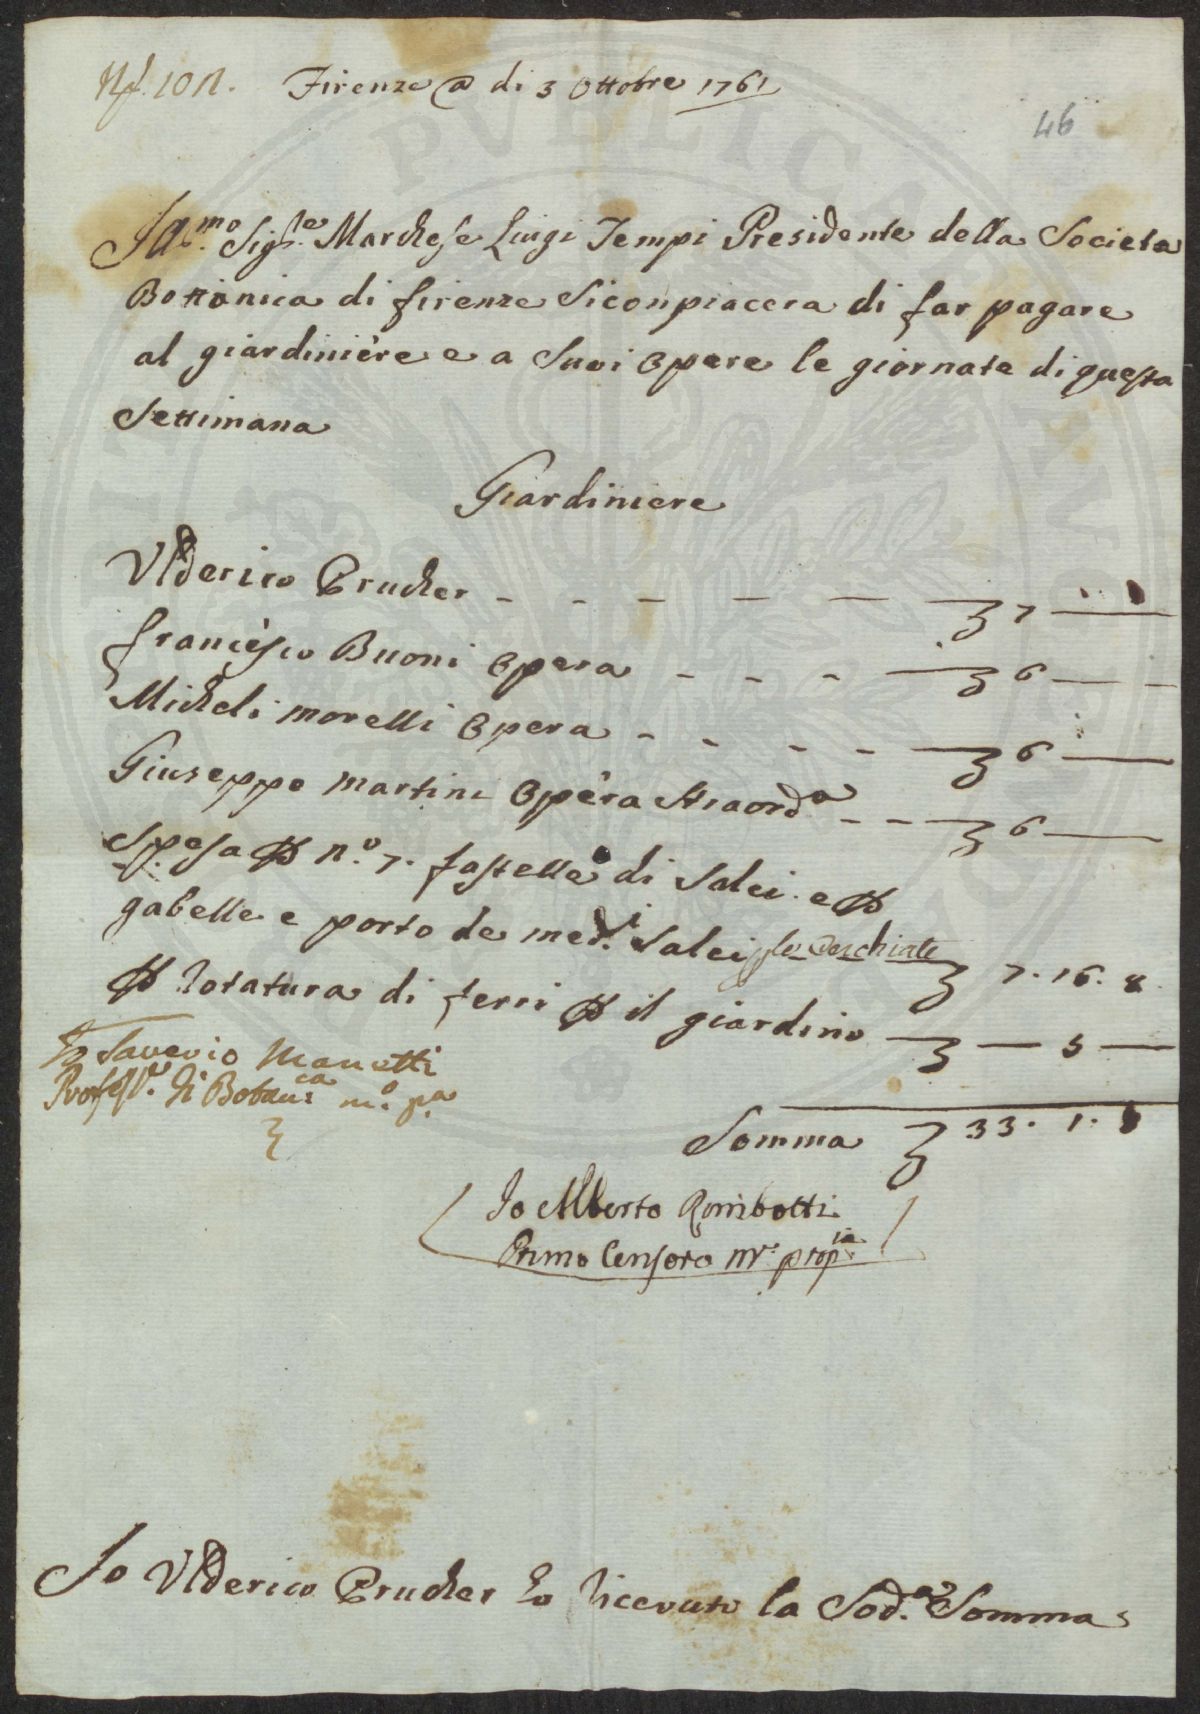 Firenze @ di 3 Ottobre 1761
46
Ill.mo Sig.re Marchese Luigi Tempi Presidente della Societa
Bottanica di firenze Siconpiacera di far pagare
al giardiniere e a Suoi Opere le giornate di questa
Settimana
Giardiniere
Vlderico Prucher - - - - - 7 —
francesco Buoni Opera - - - 6 —
Micheli morelli Opera - - - - 6 —
Giuseppe Martini Opera straord.a - - 6 —
Spesa p n.o 7. fastella di Salci. e p
gabelle e porto de med.i Salci p le Deschiate 7. 16. 8
p Rotatura di ferri p il giardino — 5 —
Io Saverio Manetti
Profess.e di Botan.ca m.o p.a
Somma 33. 1. 8
Io Alberto Rimbotti
Primo Censore m.o prop.ia
Io Vlderico Prucher ho Ricevuto la Sod.a Somma